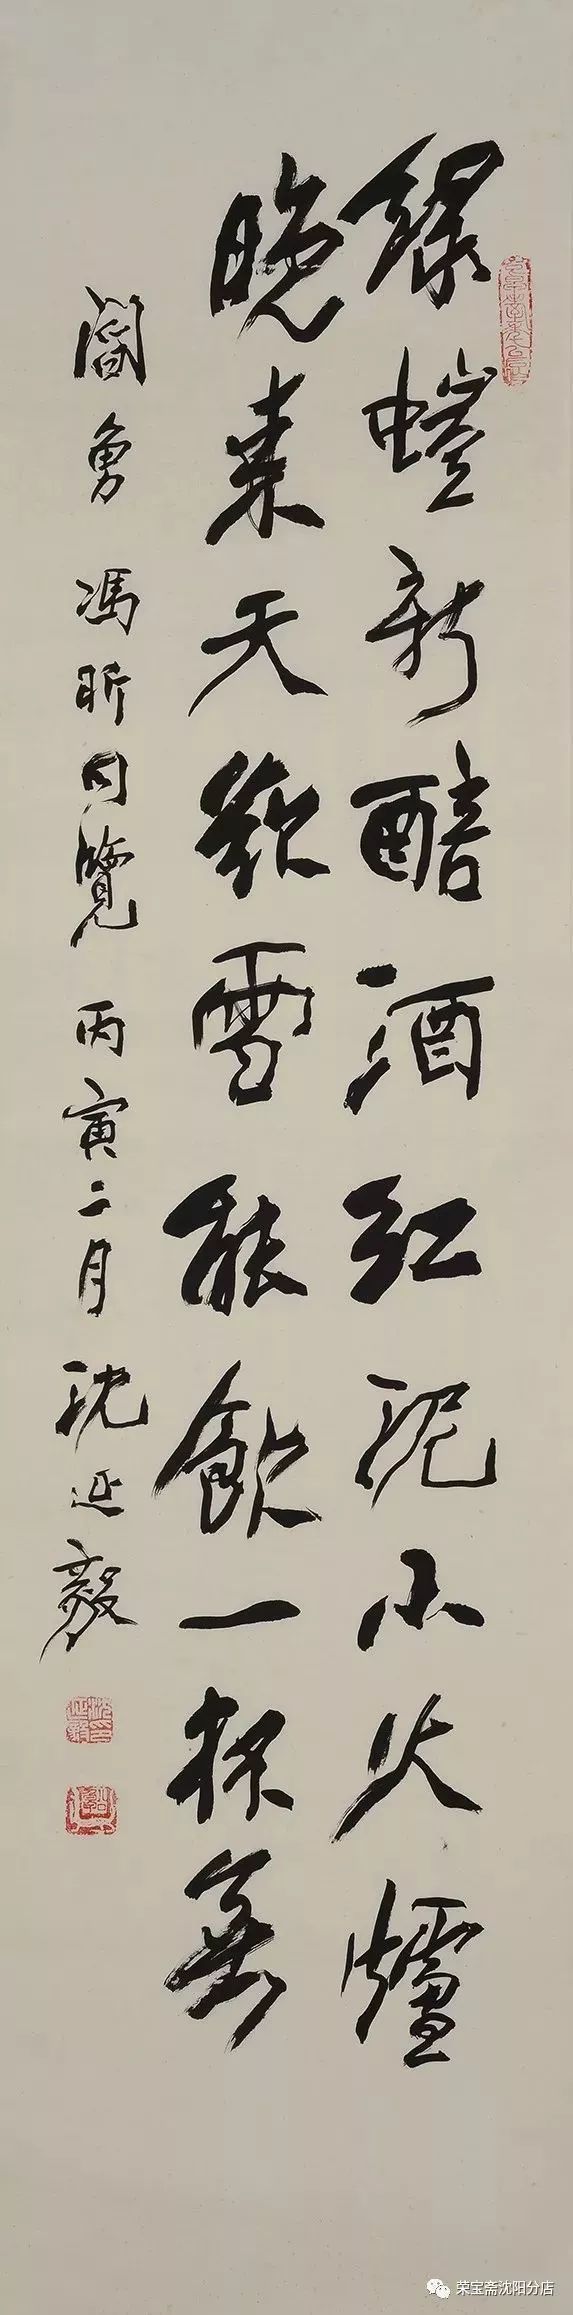 綠螘新醅酒紅泥小火爐
晚来天欲雪能飲一杯無
閻勇 馮昕同覽 丙寅二月 沈延毅
荣宝斋沈阳分店